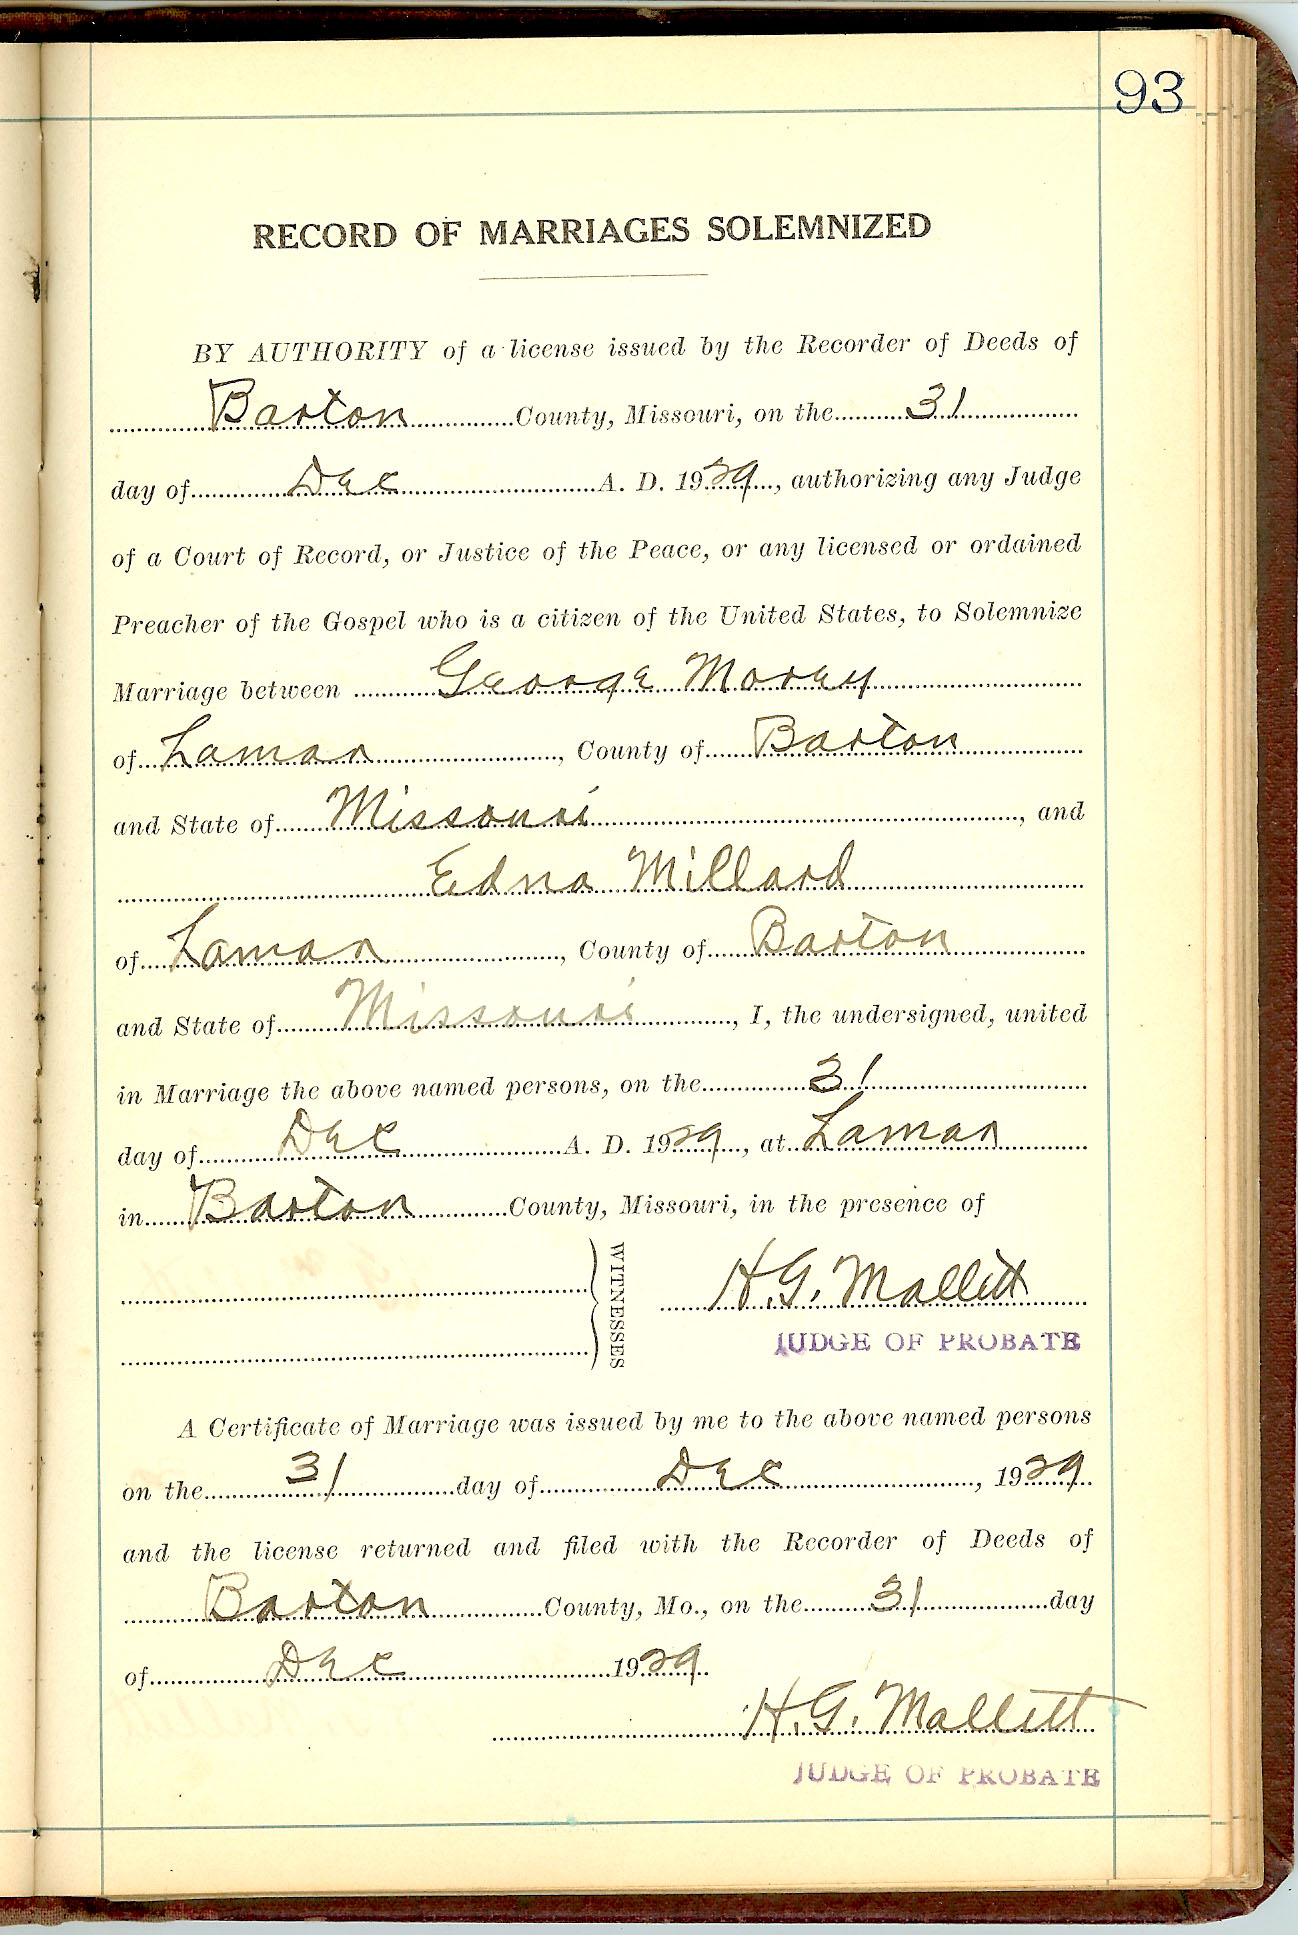 93
RECORD OF MARRIAGES SOLEMNIZED
BY AUTHORITY of a license issued by the Recorder of Deeds of
Barton County, Missouri, on the 31
day of Dec A. D. 1929, authorizing any Judge
of a Court of Record, or Justice of the Peace, or any licensed or ordained
Preacher of the Gospel who is a citizen of the United States, to Solemnize
Marriage between George Morey
of Lamar, County of Barton
and State of Missouri, and
Edna Millard
of Lamar, County of Barton
and State of Missouri, I, the undersigned, united
in Marriage the above named persons, on the 31
day of Dec A. D. 1929, at Lamar
in Barton County, Missouri, in the presence of
WITNESSES
H. G. Mallett
JUDGE OF PROBATE
A Certificate of Marriage was issued by me to the above named persons
on the 31 day of Dec, 1929
and the license returned and filed with the Recorder of Deeds of
Barton County, Mo., on the 31 day
of Dec 1929.
H. G. Mallett
JUDGE OF PROBATE